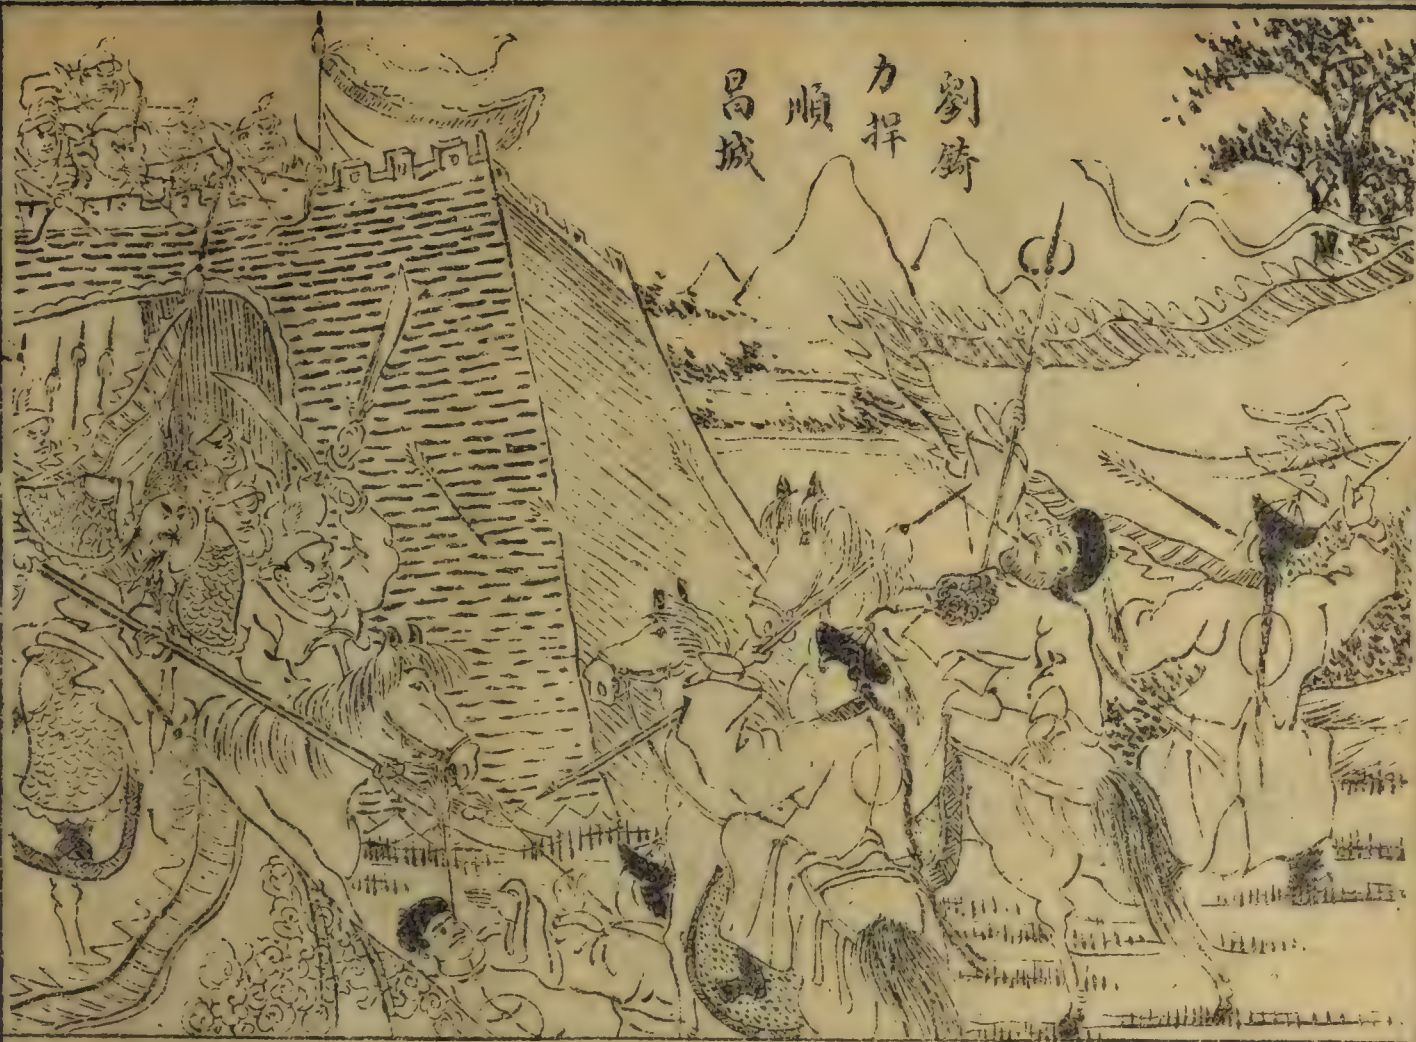 劉錡
力捍
順
昌城